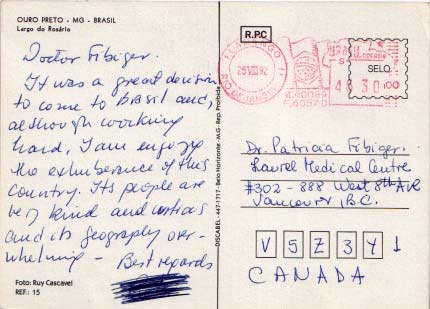 OURO PRETO - MG - BRASIL
Largo do Rosário
Doctor Fibiger.
It was a great decision
to come to Brasil and,
although working
hard, I am enjoy
the exhuberance of this
country. Its people are
very kind and
and its geography over-
whelming - Best regards
Foto: Ruy Cascavel
REF.: 15
DISCABEL - 441-1717 - Belo Horizonte - M.G. - Rep. Proibida
R.P.C
FLAMENGO
RIO DE JANEIRO
BRASIL
CORREIO
SELO
Dr. Patricia Fibiger.
Laurel Medical Centre
#302 - 888 West 8th AVE
Vancouver, B.C.
V 5 Z 3 Y 1
CANADA